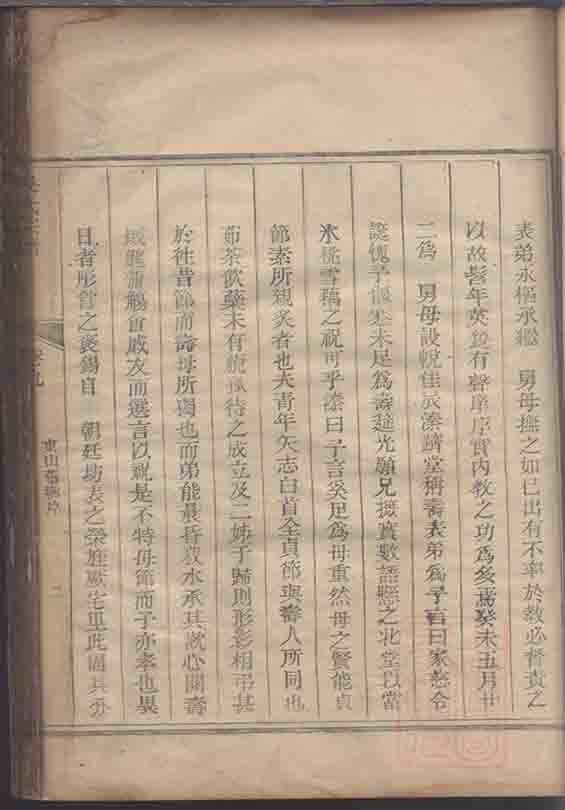 表弟永樞承繼 舅母撫之如已出有不率於教必督責之
以故髫年英發有聲庠序實內教之功為多焉癸未五月廿
二為 舅母設帨佳辰溱躋堂稱壽表弟為予言曰家慈令
誕愧予偃蹇未足為壽筵光願兄摭實數語懸之北堂以當
氷桃雪藕之祝可乎溱曰子言奚足為母重然母之賢能貞
節素所親炙者也夫青年矢志白首全貞節與壽人所同也
茹茶飲蘗未有 孤待之成立及二姊于歸則形影相弔甚
於往昔節而 母所獨也而弟能晨昏菽水承其歡心開壽
筵 觴會戚友而選言以祝是不特母節而子亦孝也異
日者彤管之褒錫自 朝廷坊表之榮旌 宅里此固其分
卷九
東山